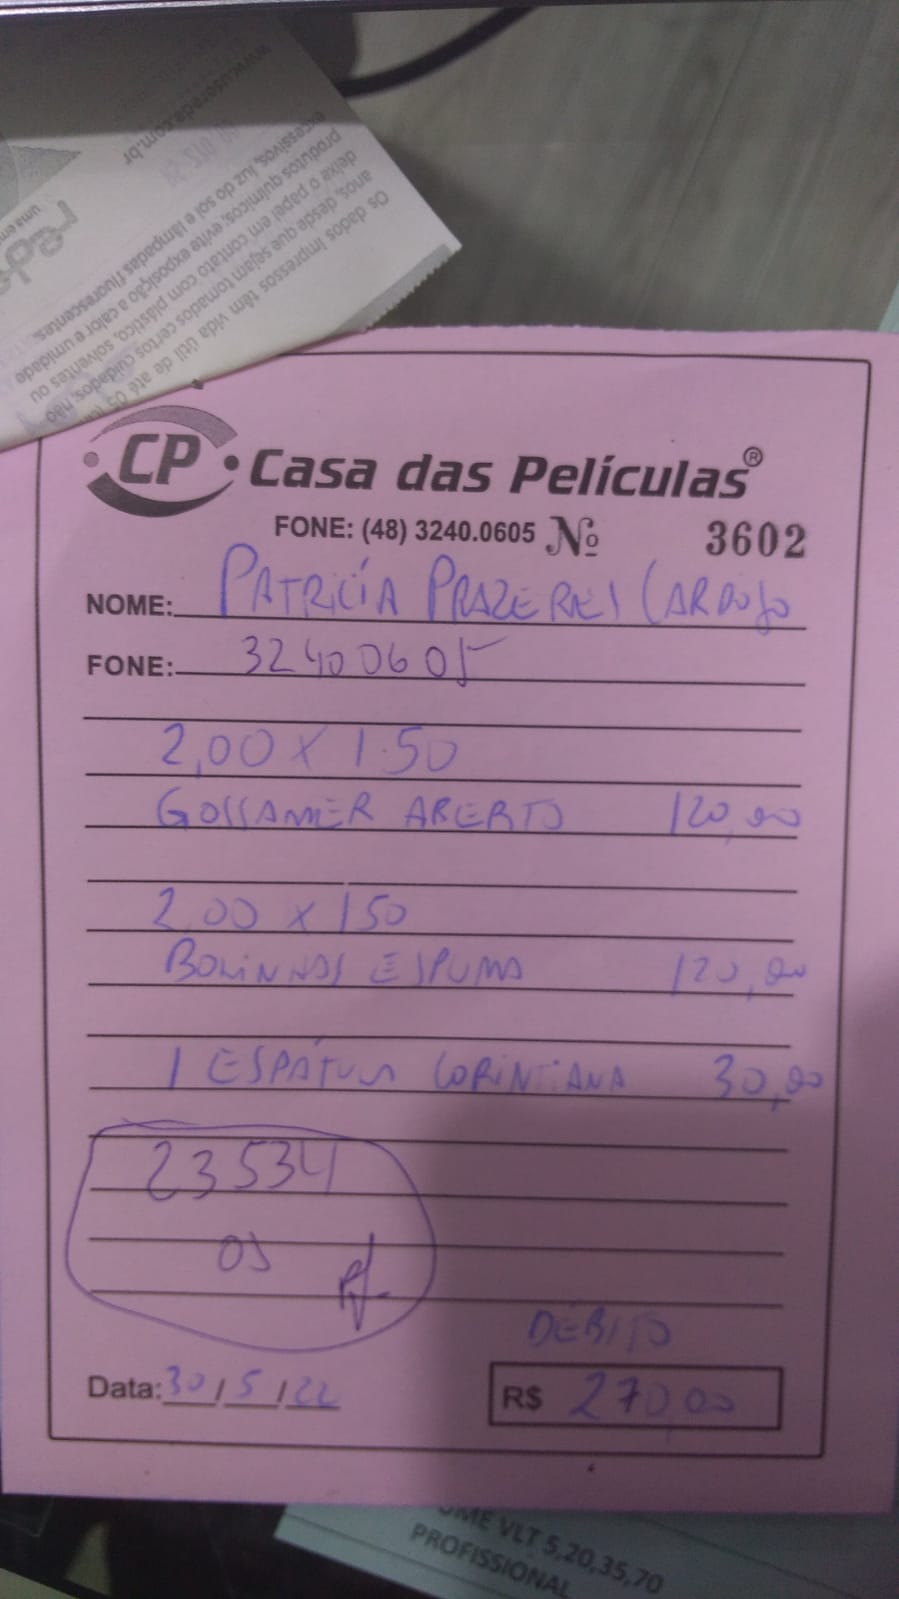 www.userede.com.br
excessivos, luz do sol e lâmpadas fluorescentes.
produtos químicos, evite exposição a calor e umidade
deixe o papel em contato com plástico, solventes ou
anos, desde que sejam tomados certos cuidados, não
Os dados impressos têm vida útil de até 05
rede
uma em
CP Casa das Películas®
FONE: (48) 3240.0605 Nº 3602
NOME: PATRICÍA PRAZERES CARDOSO
FONE: 32400605
2,00 X 1.50
GOSSAMER ABERTO 120,00
2,00 x 150
BOLINHAS ESPUMA 120,00
1 ESPÁTULA CORINTIANA 30,00
23534
OS
DÉBITO
Data: 30/5/22
R$ 270,00
UME VLT 5,20,35,70
PROFISSIONAL